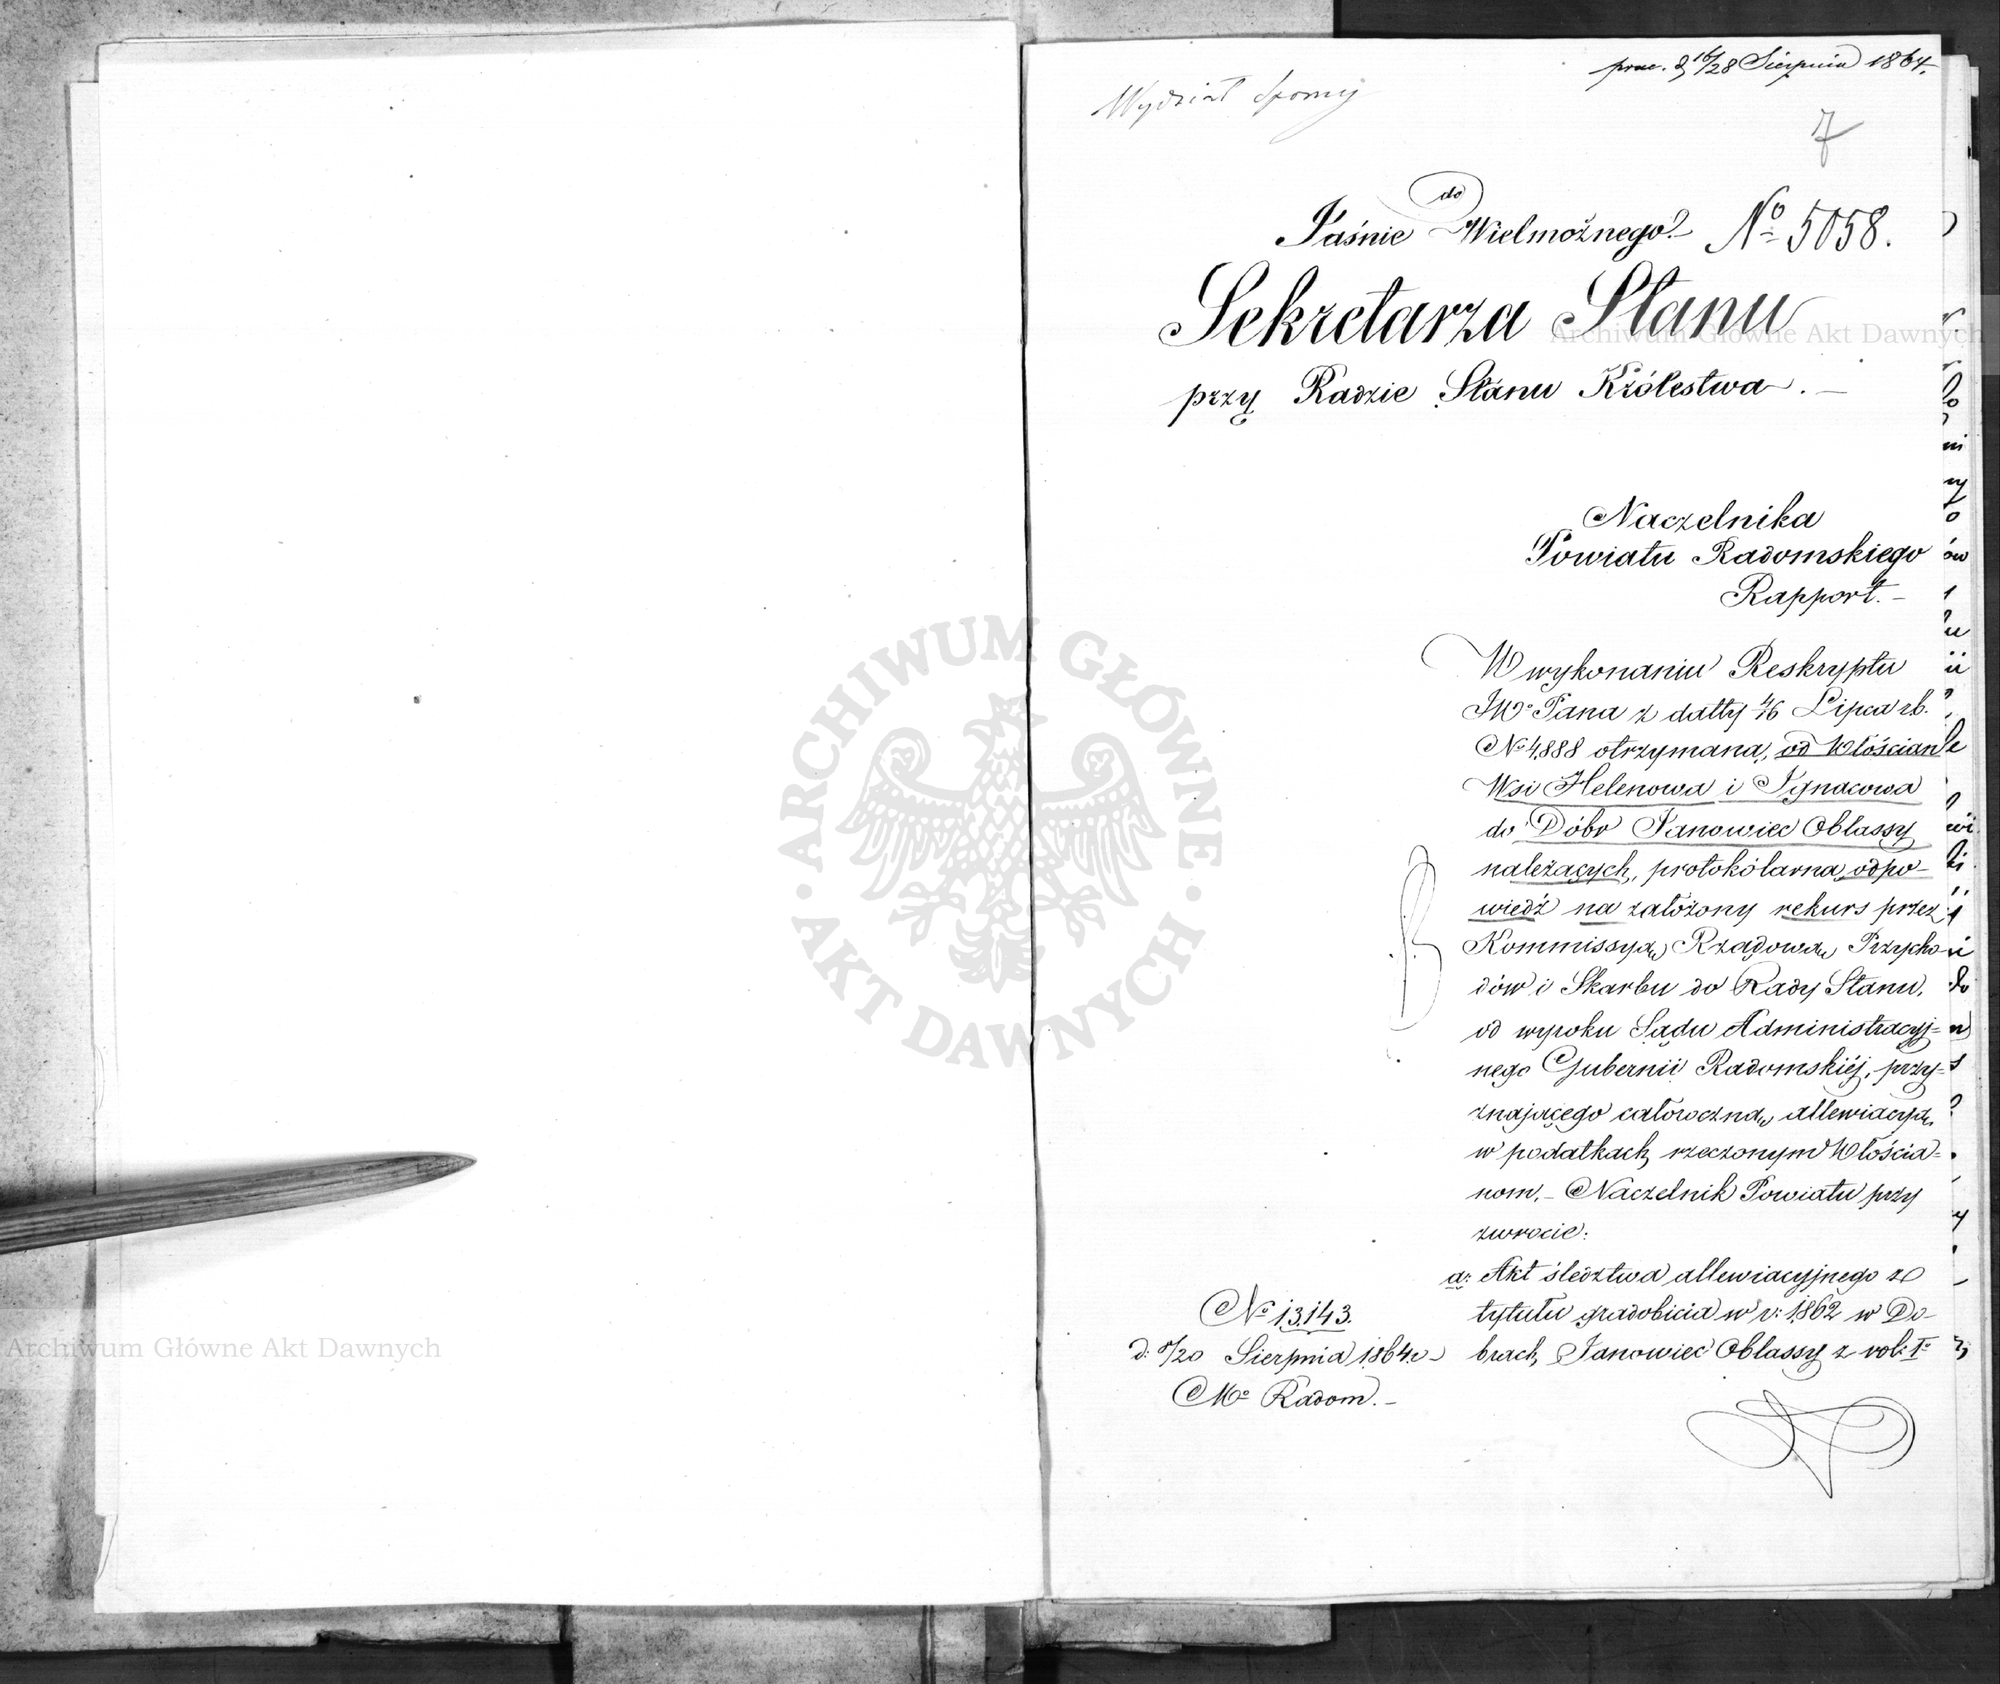 prae. d 16/28 Sierpnia 1864.
Wydział Sporny
7
do
Jaśnie Wielmożnego No 5058.
Sekretarza Stanu
przy Radzie Stanu Królestwa. —
Naczelnika
Powiatu Radomskiego
Rapport. —
W wykonaniu Reskryptu
JWo Pana z datty 4/16 Lipca rb.
No 4,888 otrzymaną, od Włościan
Wsi Helenowa i Ignacowa
do Dóbr Janowiec Oblassy
należących, protokólarną odpo-
wiedź na założony rekurs przez
Kommissyą Rządową Przycho-
dów i Skarbu do Rady Stanu,
od wyroku Sądu Administracyj=
nego Gubernii Radomskiéj, przy=
znającego całoroczną allewiacyą
w podatkach rzeczonym Włościa=
nom, — Naczelnik Powiatu przy
zwrocie:
a: Akt śledztwa allewiacyjnego z
tytułu gradobicia w r: 1862 w Do-
brach Janowiec Oblassy z vol: Io
No 13,143.
d: 8/20 Sierpnia 1864 r
Mo Radom. —
ARCHIWUM GŁÓWNE AKT DAWNYCH
Archiwum Główne Akt Dawnych
Archiwum Główne Akt Dawnych